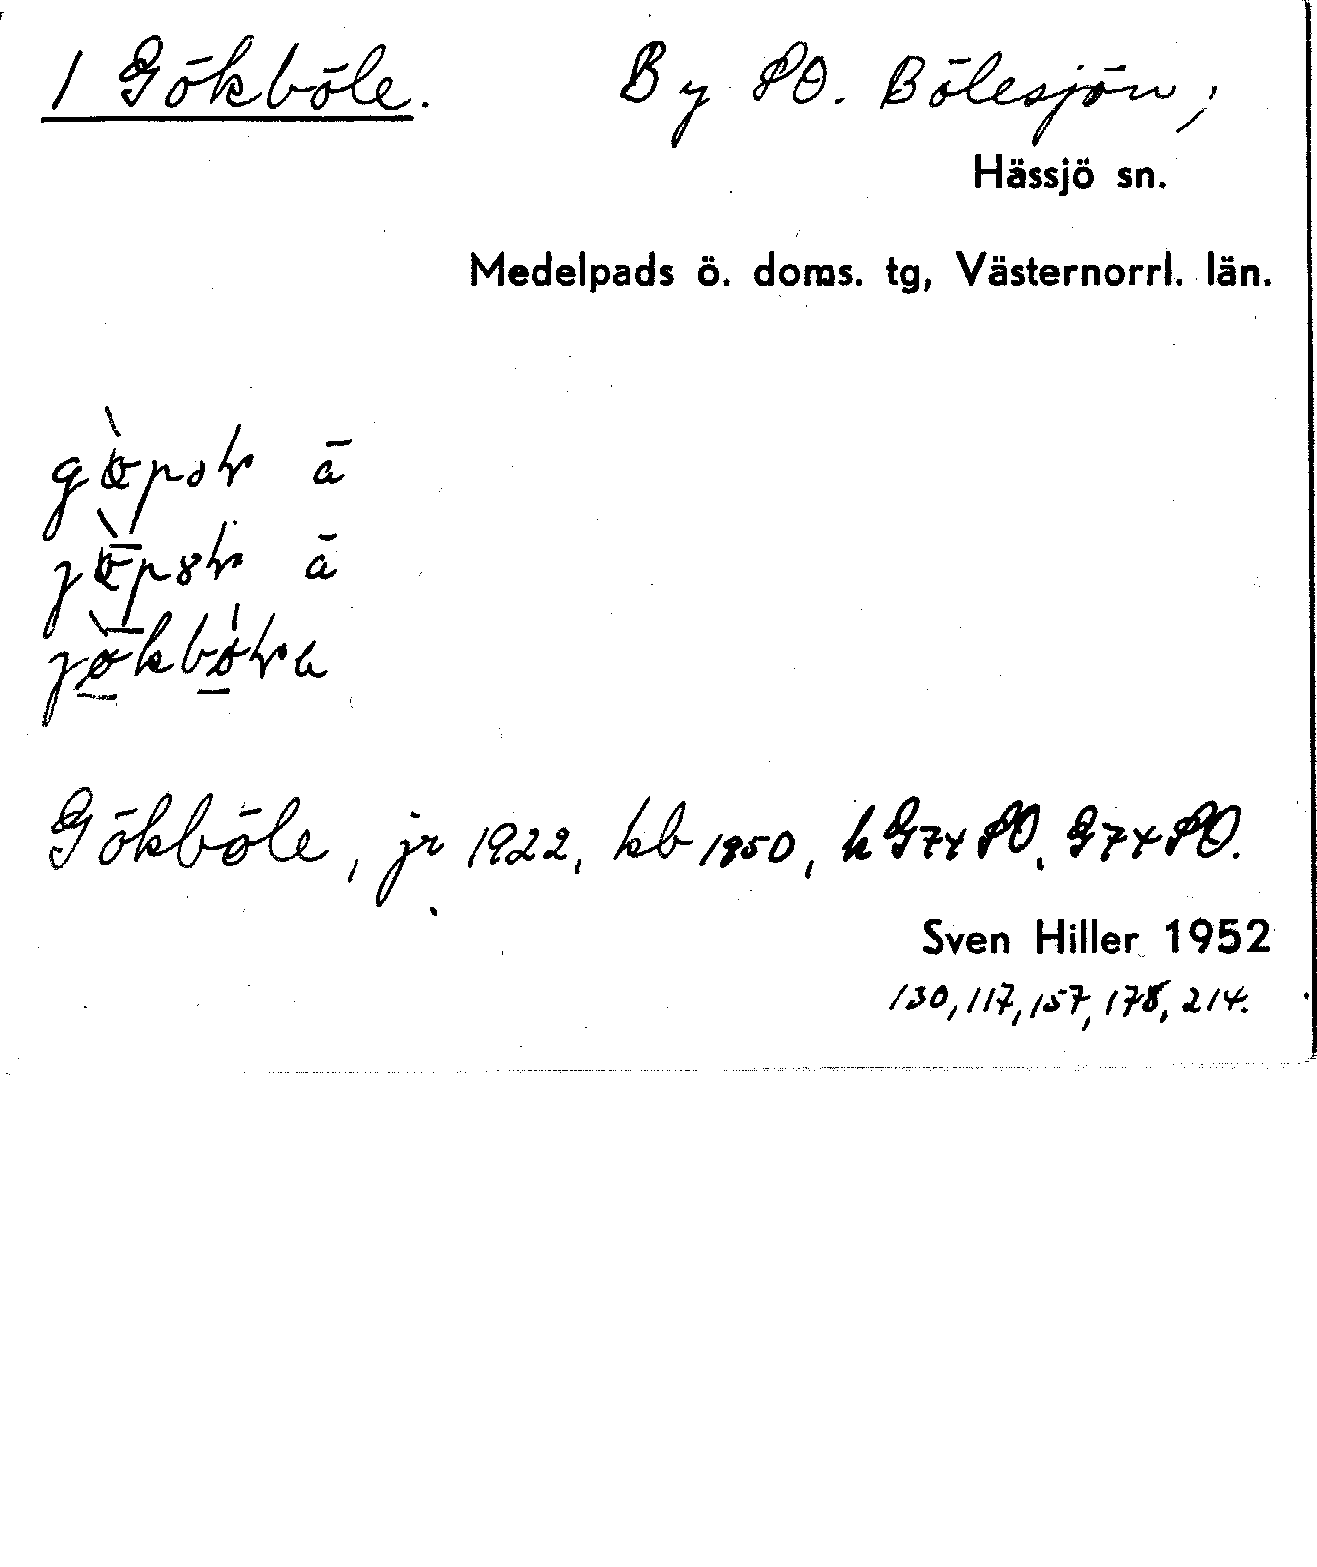 1 Gökböle. By SO. Bölesjön;
Hässjö sn.
Medelpads ö. doms. tg, Västernorrl. län.
ā
ā
Gökböle, jr 1922, kb 1950, k G74 SO, G74 SO.
Sven Hiller 1952
130, 117, 157, 178, 214.